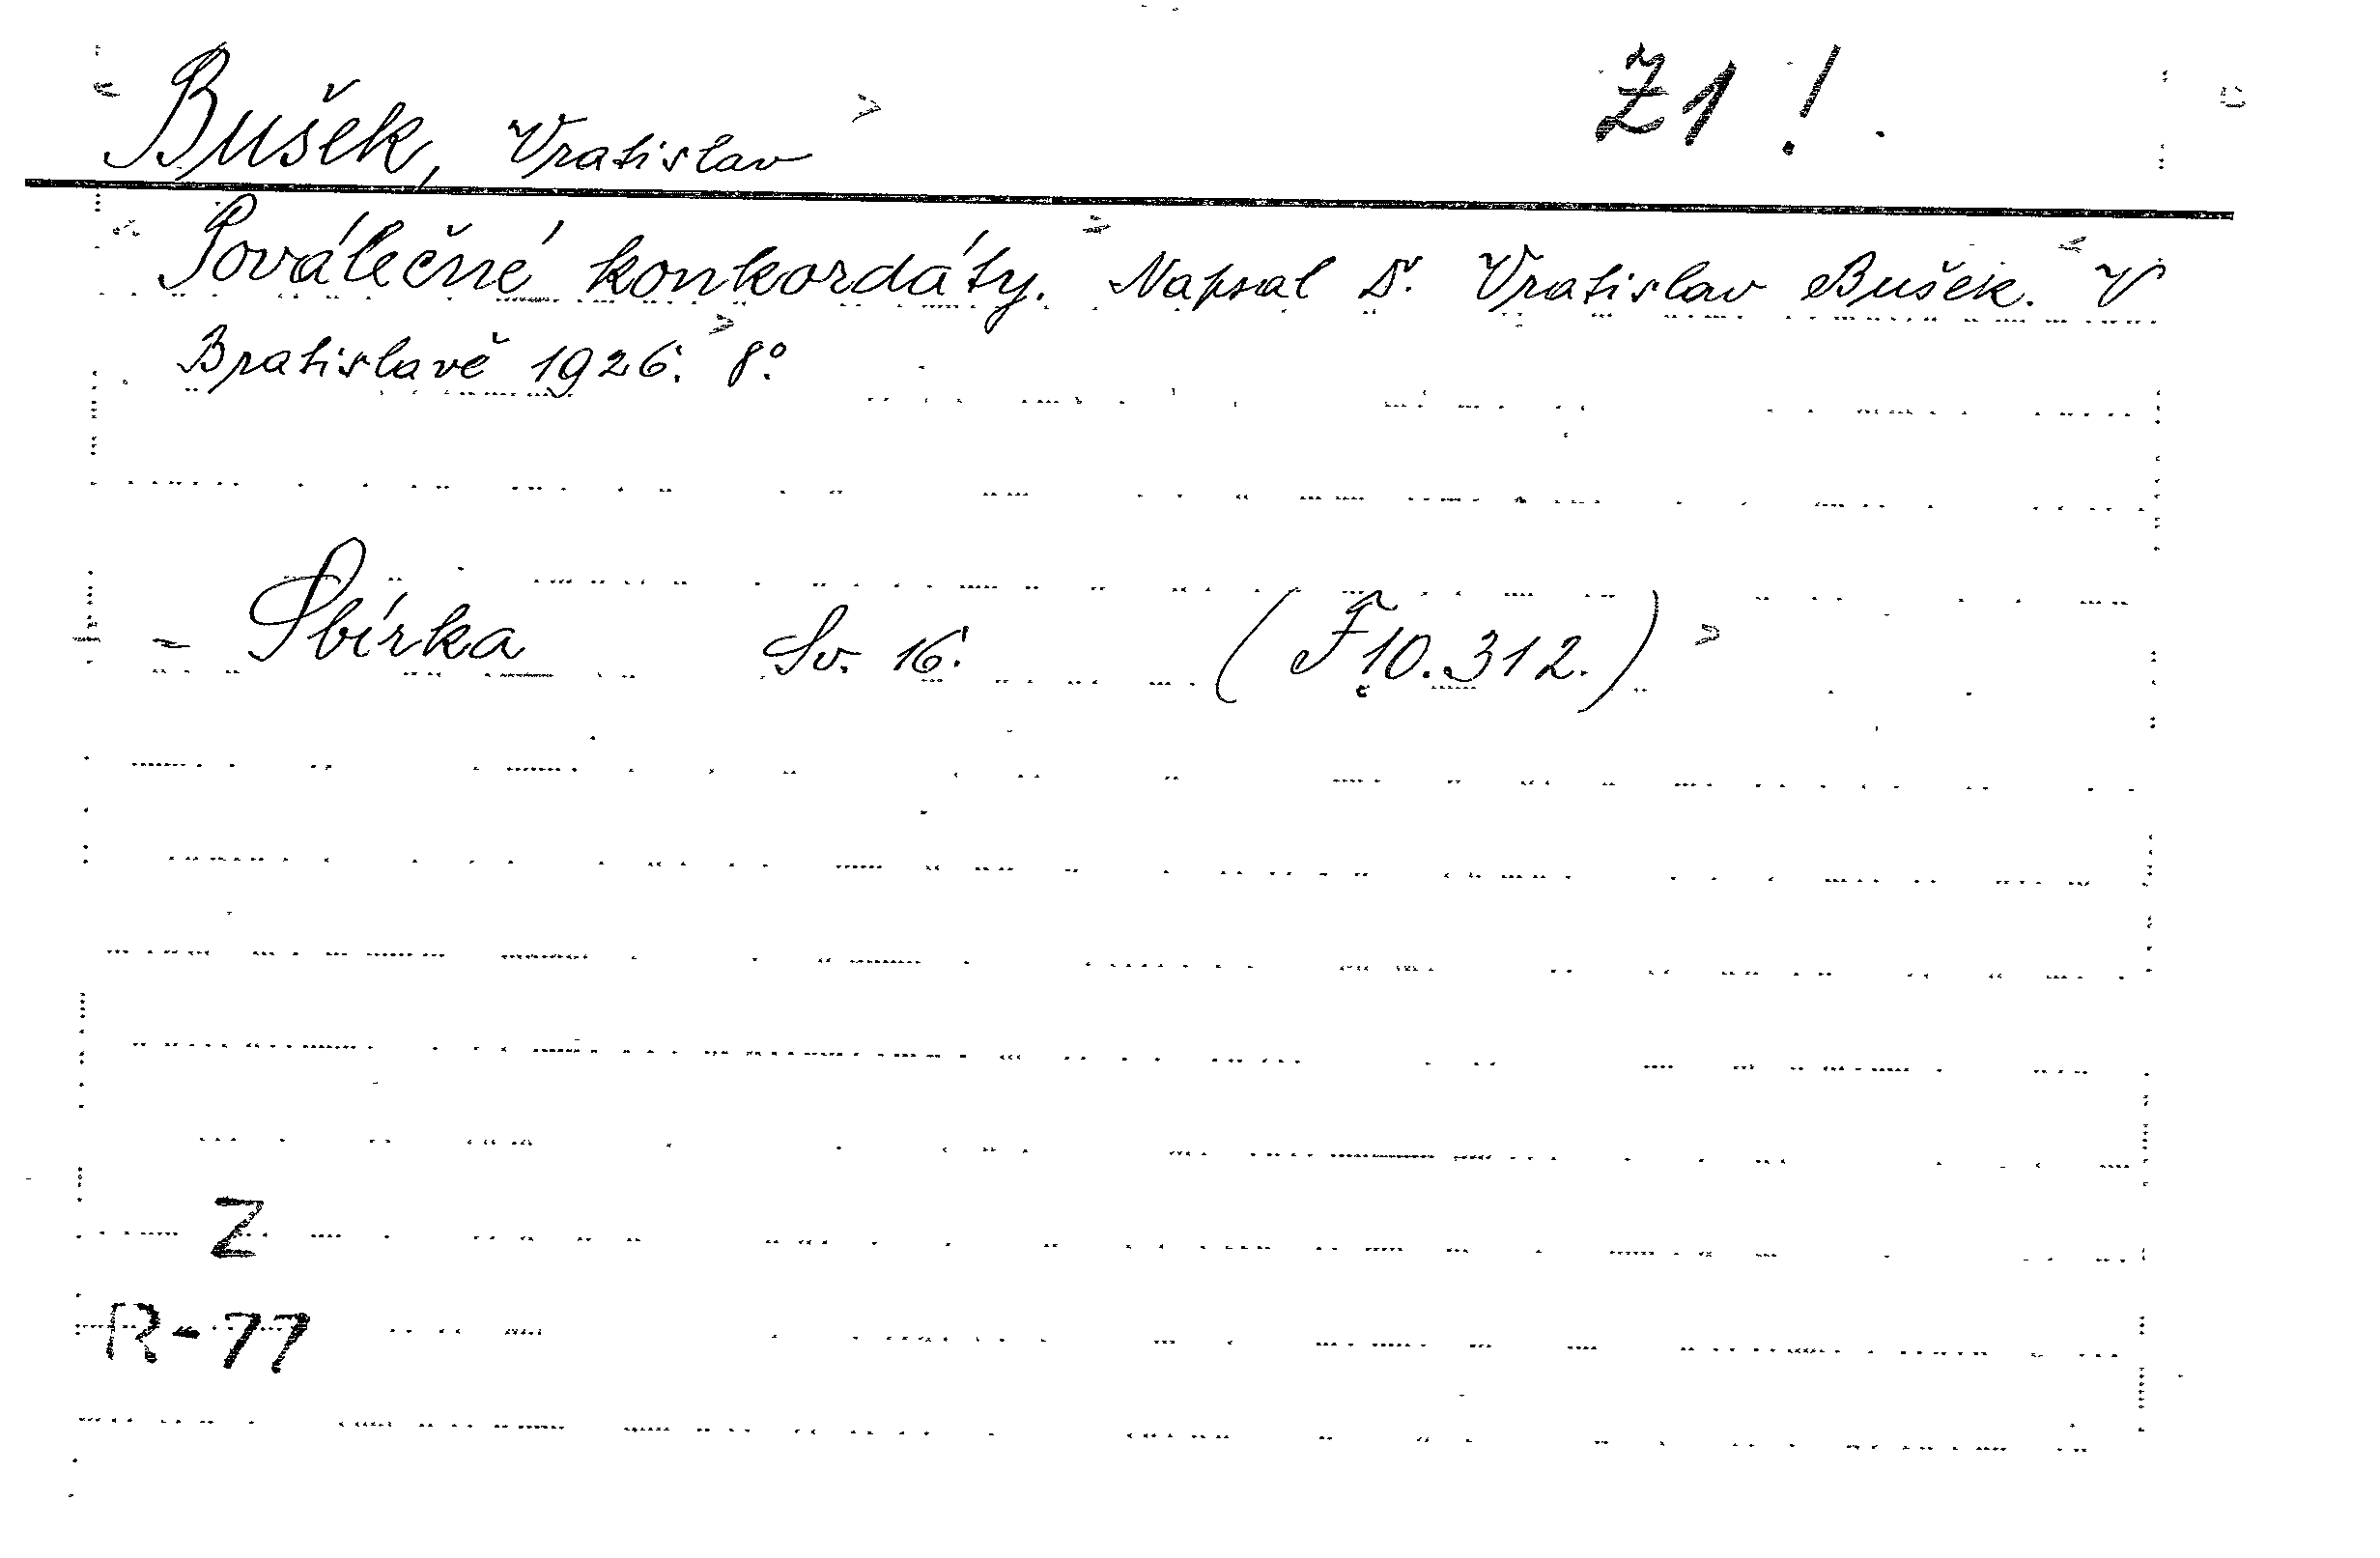 Bušek, Vratislav Z1!
Poválečné konkordáty. Napsal Dr. Vratislav Bušek. V
Bratislavě 1926. 8°.
= Sbírka Sv. 16. (F 10.312.)
Z
R-77